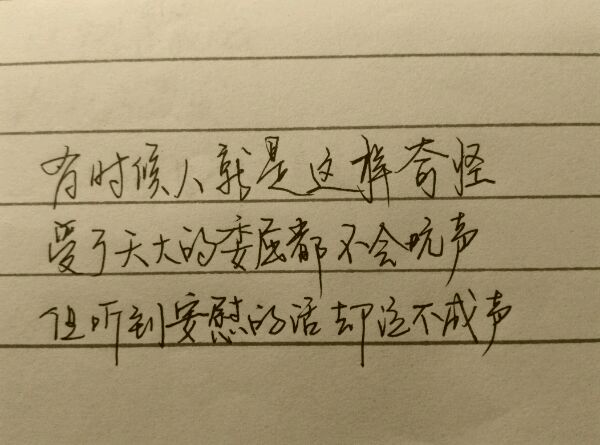 有时候人就是这样奇怪
受了天大的委屈都不会吭声
但听到安慰的话却泣不成声